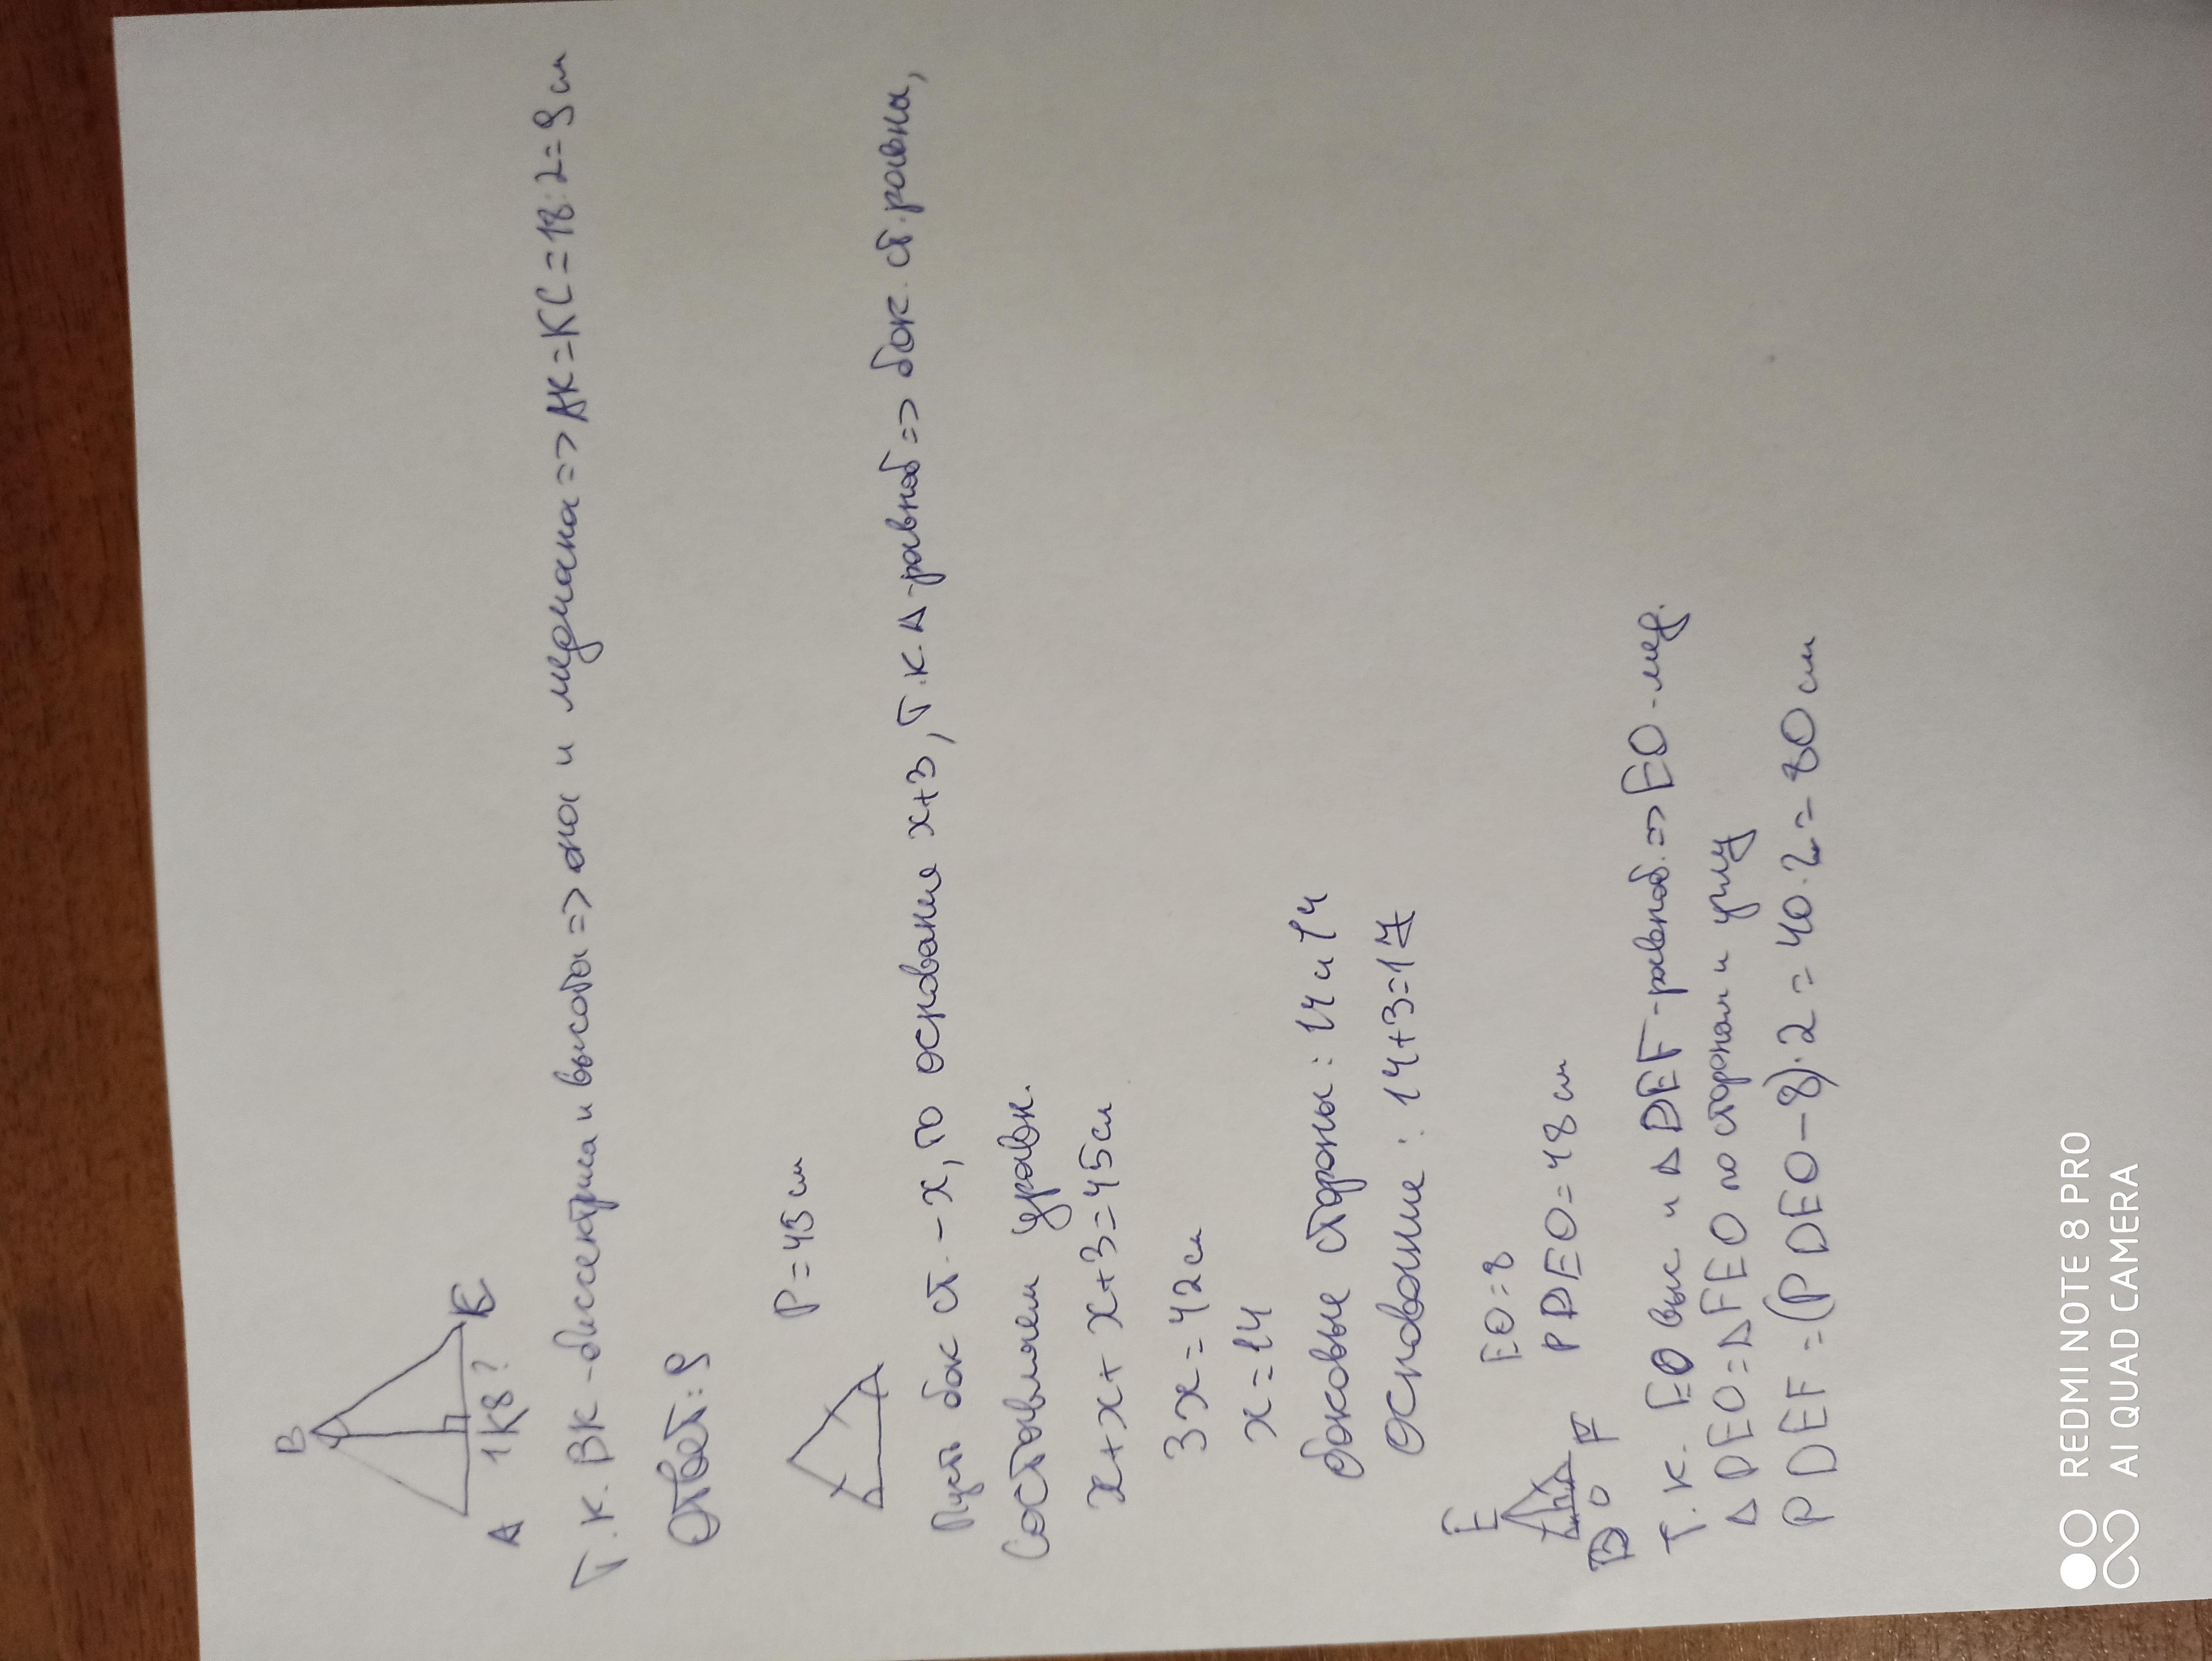 B
A 1K8? C
Т.к. BK - биссектриса и высота => она и медиана => AK = KC = 18:2 = 9 см
Ответ: 9
P = 45 см
Пусть бок ст. - x, то основание x+3, т.к. Δ равноб => бок. ст. равны,
Составляем уравн.
x+x+x+3=45 см
3x = 42 см
x = 14
боковые стороны: 14 и 14
основание: 14+3=17
E
D O F
EO = 8
PDEO = 48 см
Т.к. EO выс и Δ DEF - равноб. => EO - мед.
Δ DEO = Δ FEO по сторонам и углу
PDEF = (PDEO - 8)·2 = 40·2 = 80 см
REDMI NOTE 8 PRO
AI QUAD CAMERA